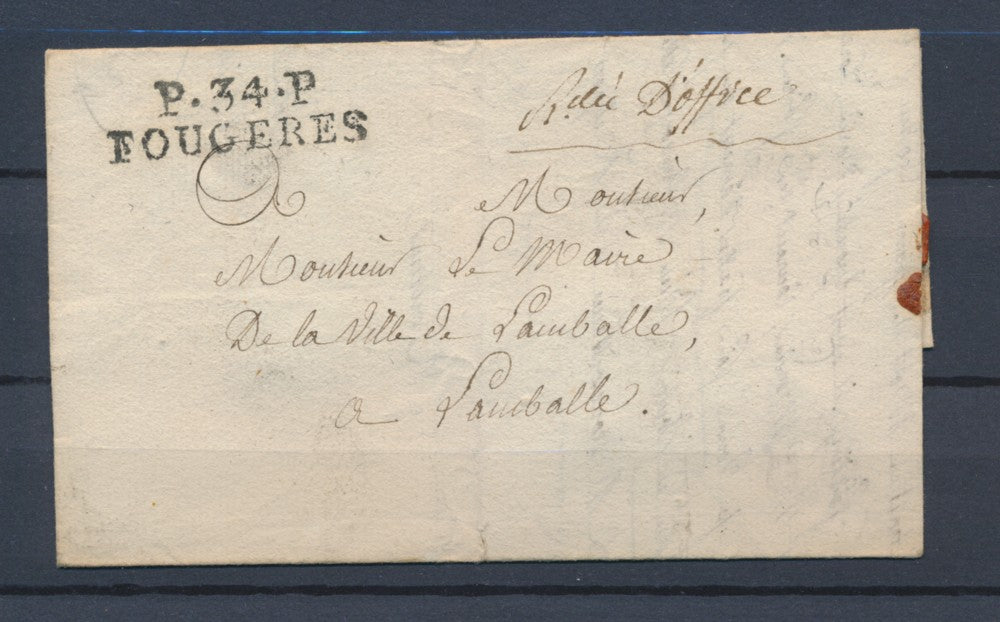 P.34.P
FOUGERES
D'office
A Monsieur,
Monsieur Le Maire
De la Ville de Lamballe,
a Lamballe.